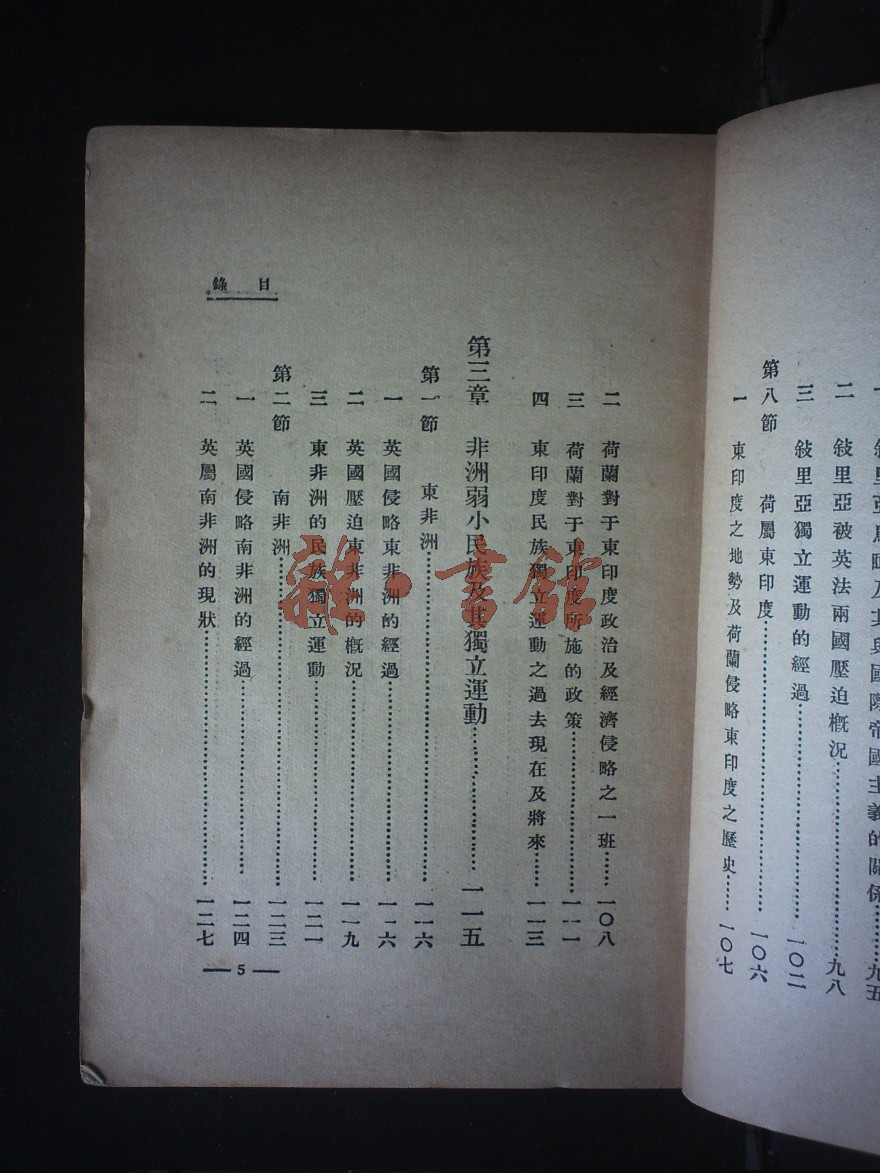 敍里亞被英法兩國壓迫概況……九八
三 敍里亞獨立運動的經過……一〇二
第八節 荷屬東印度……一〇六
一 東印度之地勢及荷蘭侵略東印度之歷史……一〇七
目錄
二 荷蘭對于東印度政治及經濟侵略之一班……一〇八
三 荷蘭對于東印度所施的政策……一一一
四 東印度民族獨立運動之過去現在及將來……一一三
第三章 非洲弱小民族及其獨立運動……一一五
第一節 東非洲……一一六
一 英國侵略東非洲的經過……一一六
二 英國壓迫東非洲的概況……一一九
三 東非洲的民族獨立運動……一二一
第二節 南非洲……一二三
一 英國侵略南非洲的經過……一二四
二 英屬南非洲的現狀……一二七
— 5 —
雜·書館